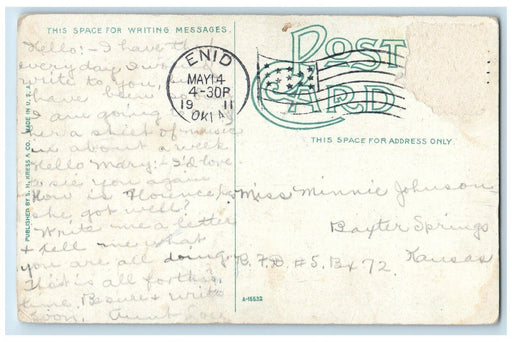 THIS SPACE FOR WRITING MESSAGES.
POST
CARD
ENID
MAY 14
4-30P
19 11
OKLA
THIS SPACE FOR ADDRESS ONLY
PUBLISHED BY S. H. KRESS & CO. MADE IN U. S. A.
Hello:- I have
every day I
write to you
have been
I am going
a sheet of music
in about a week
Hello Mary:- I'd love
to see you again
How is Florence
she got well?
Write me a letter
& tell me what
you are all doing
That is all for this
time. Be sure & write
soon. Aunt
Miss Minnie Johnson
Baxter Springs
R.F.D. #5, Bx 72. Kansas